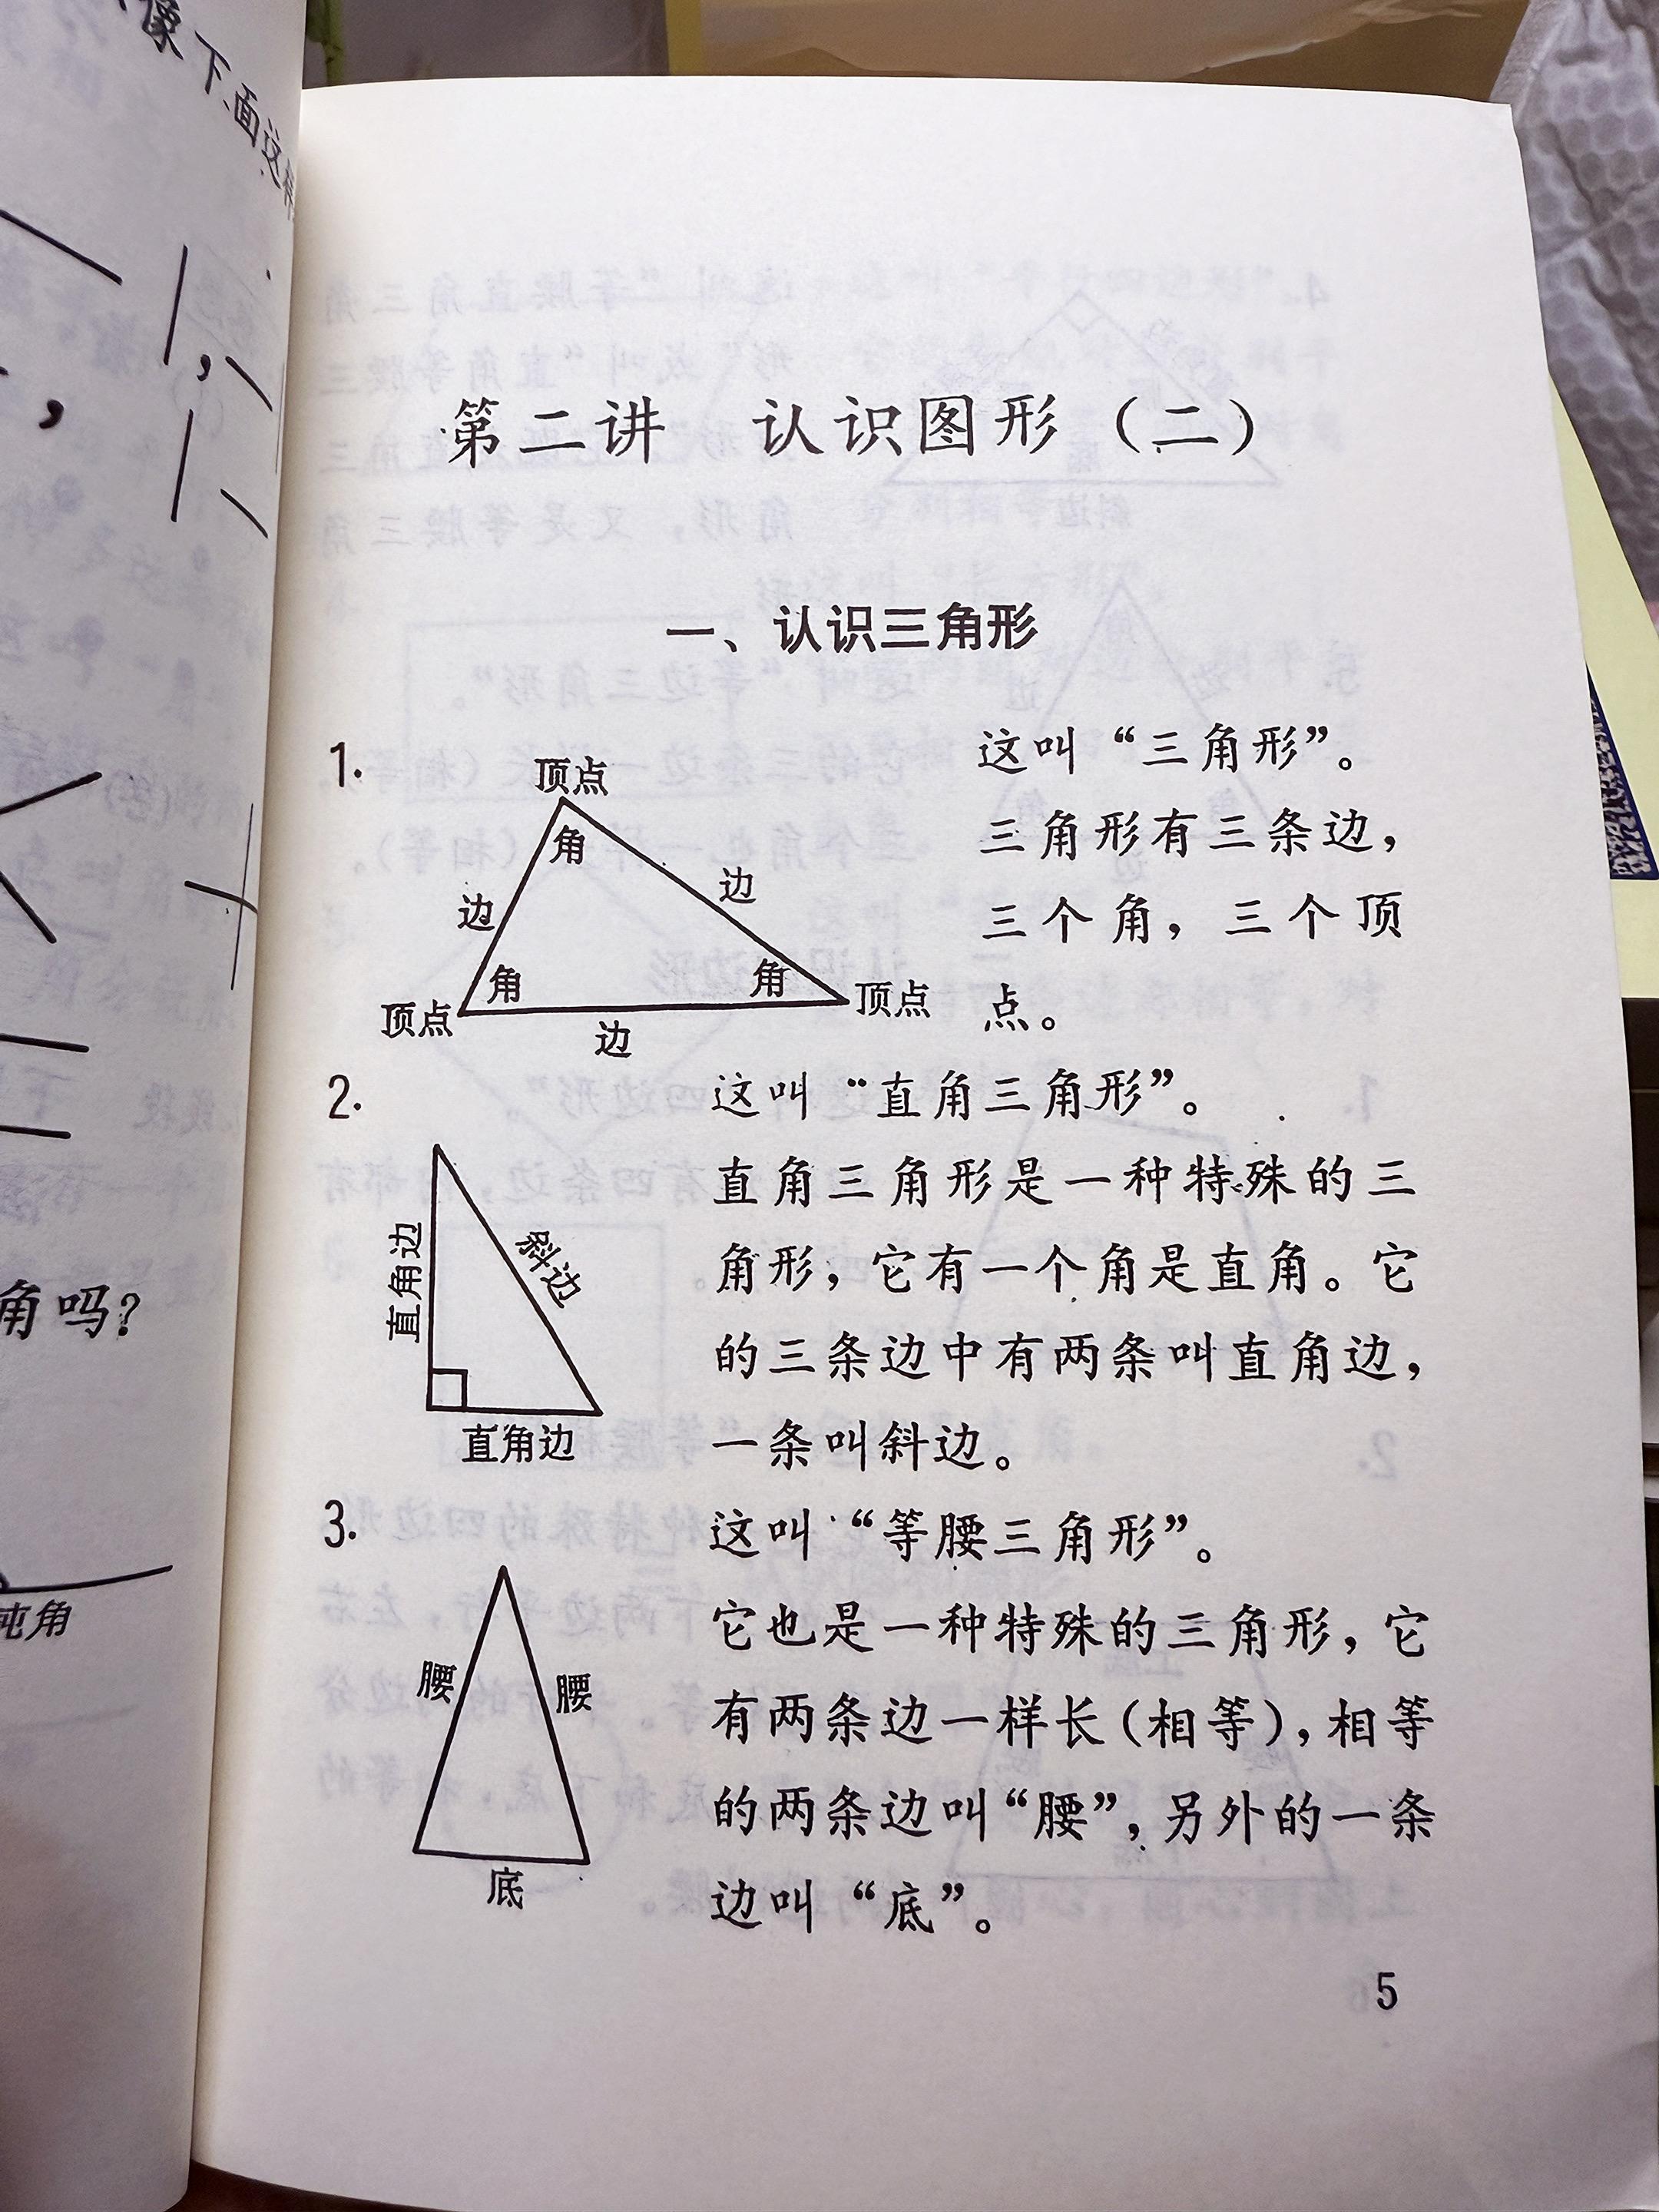 像下面这样
角吗?
钝角
第二讲 认识图形（二）
一、认识三角形
1.
顶点
角
边
边
角
角
顶点
顶点
边
这叫“三角形”。
三角形有三条边,
三个角, 三个顶
点。
2.
直角边
斜边
直角边
这叫“直角三角形”。
直角三角形是一种特殊的三
角形, 它有一个角是直角。它
的三条边中有两条叫直角边,
一条叫斜边。
3.
腰
腰
底
这叫“等腰三角形”。
它也是一种特殊的三角形, 它
有两条边一样长(相等), 相等
的两条边叫“腰”, 另外的一条
边叫“底”。
5